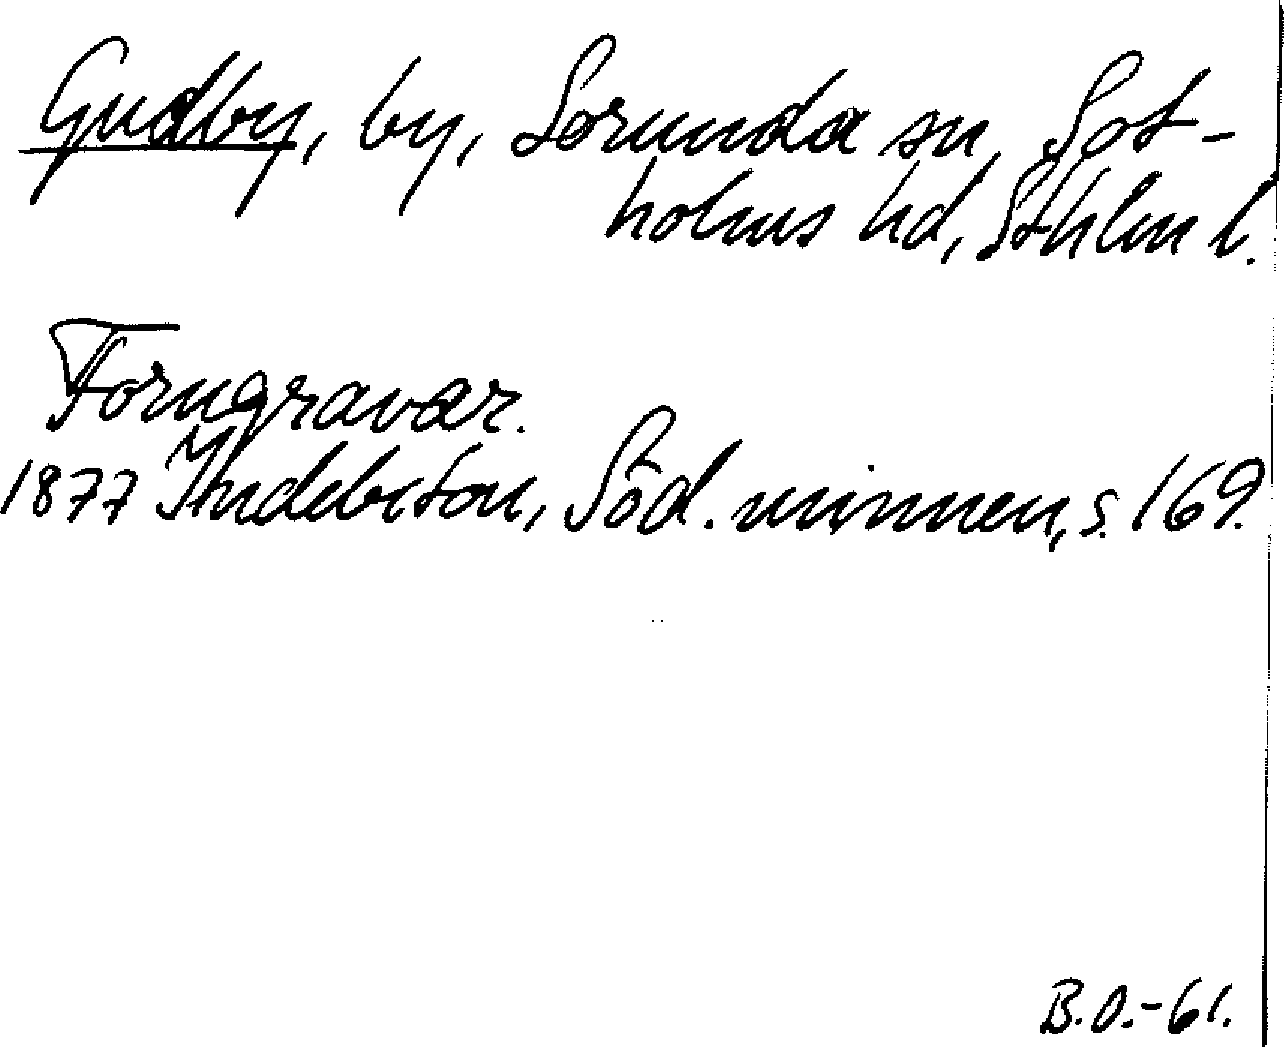 Gudby, by, Sorunda sn, Sot-
holms hd, Sthlm l.
Forngravar.
1877 Indebetou, Söd. minnen, s. 169.
B.O.-61.